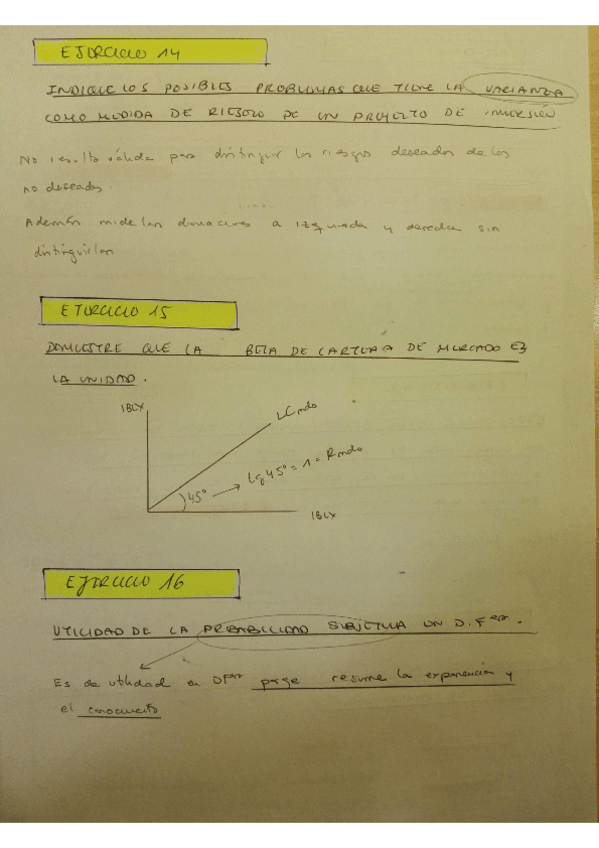 EJERCICIO 14
INDIQUE LOS POSIBLES PROBLEMAS QUE TIENE LA VARIANZA
COMO MEDIDA DE RIESGO DE UN PROYECTO DE INVERSIÓN
No resulta válida para distinguir los riesgos deseados de los
no deseados.
Además mide las desviaciones a izquierda y derecha sin
distinguirlas
EJERCICIO 15
DEMUESTRE QUE LA BETA DE CARTERA DE MERCADO ES
LA UNIDAD.
IBEX
LC mdo
45º → tg 45º = 1 = R mdo
IBEX
EJERCICIO 16
UTILIDAD DE LA PROBABILIDAD SUBJETIVA EN D. Fª.
Es de utilidad en DFª resume la experiencia y
el conocimiento